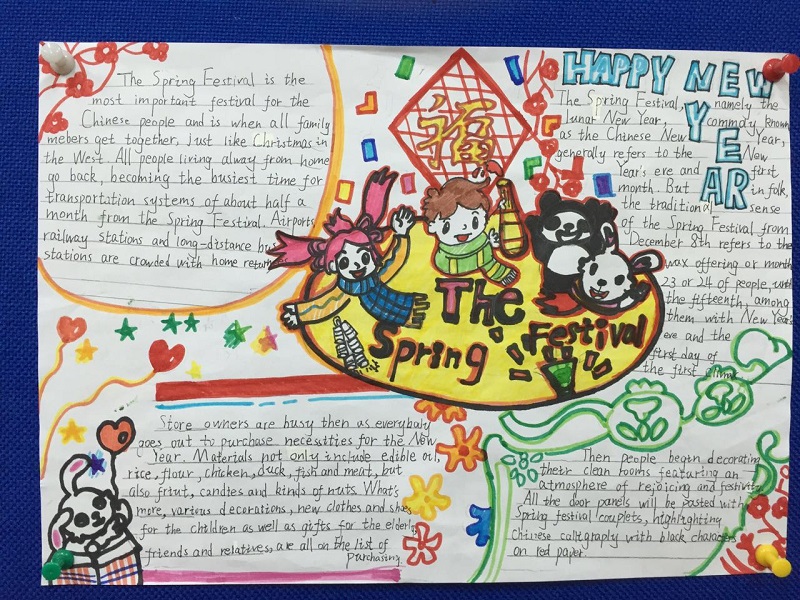 The Spring Festival is the
most important festival for the
Chinese people and is when all family
mebers get together, just like Christmas in
the West. All people living alway from home
go back, becoming the busiest time for
transportation systems of about half a
month from the Spring Festival. Airports,
railway stations and long-distance bus
stations are crowded with home
福
HAPPY NEW
YEAR
The Spring Festival, namely the
lunar New Year, commonly known
as the Chinese New Year,
generally refers to the New
Year's eve and first
month. But in folk,
the traditional sense
of the Spring Festival from
December 8th refers to the
wax offering or month
23 or 24 of people, until
the fifteenth, among
them with New Year's
eve and the
first day of
the first
The
Spring Festival
Store owners are busy then as everybody
goes out to purchase necessities for the New
Year. Materials not only include edible oil,
rice, flour, chicken, duck, fish and meat, but
also friut, candies and kinds of nuts. What's
more, various decorations, new clothes and shoes
for the children as well as gifts for the elderly,
friends and relatives, are all on the list of
purchasing.
Then people began decorating
their clean rooms featuring an
atmosphere of rejoicing and festivity.
All the door panels will be posted with
Spring festival couplets, highlighting
Chinese calligraphy with black characters
on red paper.